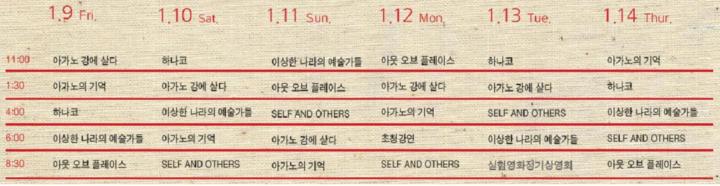 1.9 Fri. 1.10 Sat. 1.11 Sun. 1.12 Mon. 1.13 Tue. 1.14 Thur.
11:00 아가노 강에 살다 하나코 이상한 나라의 예술가들 아웃 오브 플레이스 하나코 아가노의 기억
1:30 아가노의 기억 아가노 강에 살다 아웃 오브 플레이스 아가노 강에 살다 아가노 강에 살다 하나코
4:00 하나코 이상한 나라의 예술가들 SELF AND OTHERS 아가노의 기억 SELF AND OTHERS 이상한 나라의 예술가들
6:00 이상한 나라의 예술가들 아가노의 기억 아가노 강에 살다 초청강연 이상한 나라의 예술가들 SELF AND OTHERS
8:30 아웃 오브 플레이스 SELF AND OTHERS 아가노의 기억 SELF AND OTHERS 실험영화정기상영회 아웃 오브 플레이스